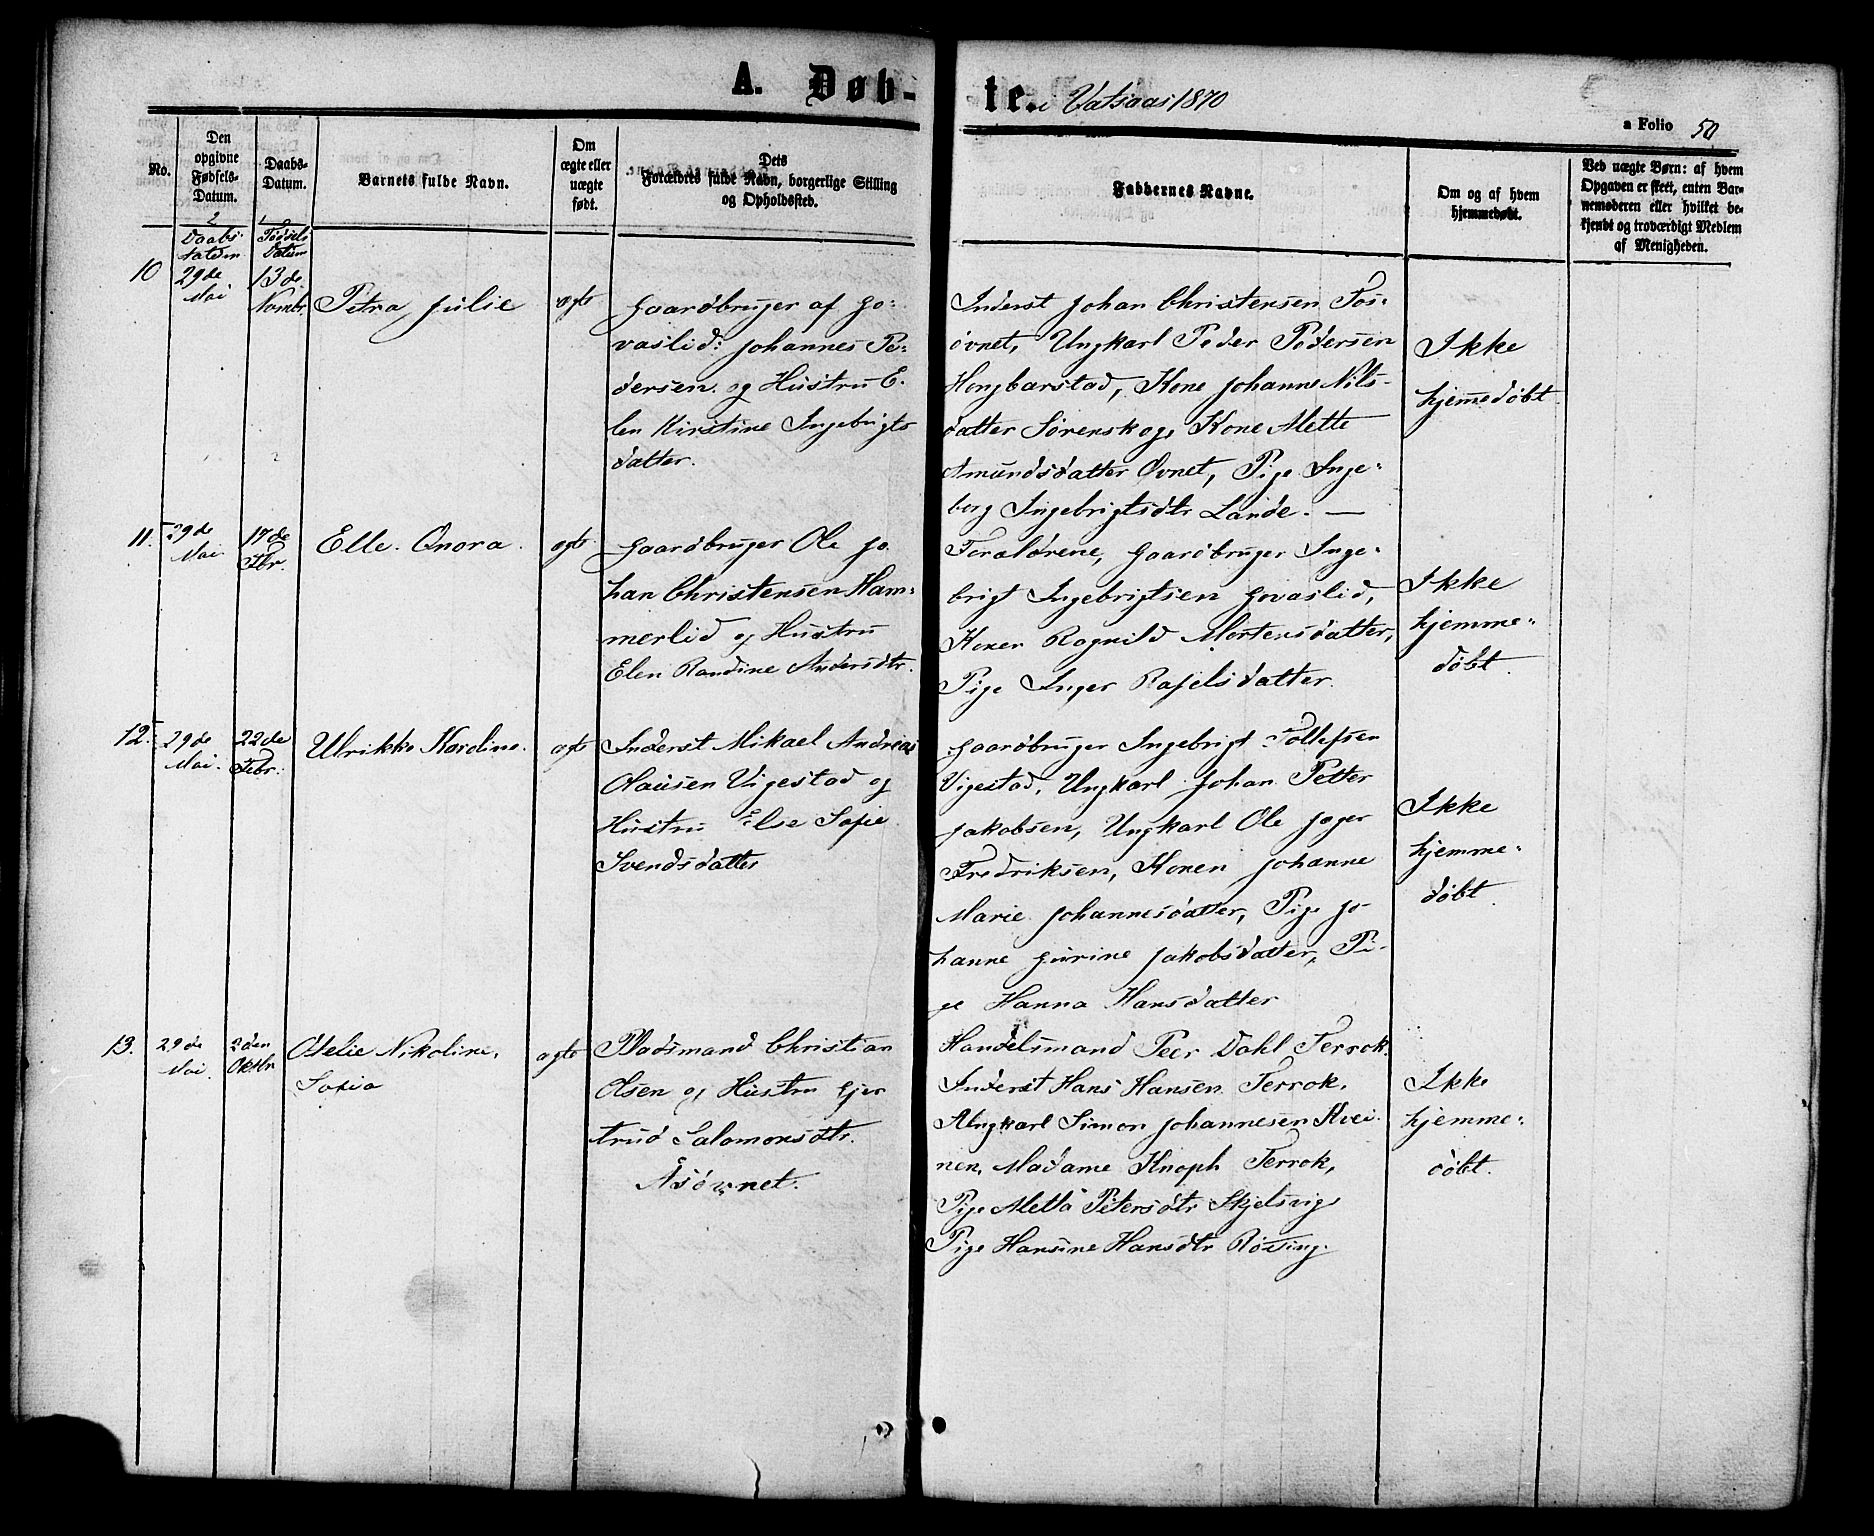 A. Døb-te. i Vatsaas 1870
a Folio 50
No.
Den opgivne Fødsels-Datum.
Daabs-Datum.
Barnets fulde Navn.
Om ægte eller uægte født.
Dets Forældres fulde Navn, borgerlige Stilling og Opholdssted.
Faddernes Navne.
Om og af hvem hjemmedøbt.
Ved uægte Børn: af hvem Opgaven er skeet, enten Barnemoderen eller hvilket bekjendt og troværdigt Medlem af Menigheden.
2 Daabs-datum
1 Fødsels Datum
10
29de Mai
13de Novmbr.
Petra Julie
ægte
Gaardbruger af Jo-
vaslid: Johannes Pe-
dersen og Hustru E-
len Kirstine Ingebrigts
datter.
Inderst Johan Christensen Tos-
øvnet, Ungkarl Peder Pedersen
Hongbarstad, Kone Johanne Nils-
datter Sørenskog, Kone Mette
Amundsdatter Øvnet, Pige Inge-
borg Ingebrigtsdtr Lande. —
Ikke
hjemedøbt
11.
29de Mai
17de Fbr.
Elle Onora.
ægte
Gaardbruger Ole Jo
han Christensen Ham-
merlid og Hustru
Elen Randine Andersdtr.
Forældrene, Gaardbruger Inge-
brigt Ingebrigtsen Govaslid,
Konen Ragnild Mortensdatter,
Pige Inger Rafelsdatter.
Ikke
hjemme-
døbt
12.
29de Mai.
22de Febr.
Ulrikke Karoline.
ægte
Inderst Mikael Andreas
Olausen Vigestad og
Hustru Else Sofie
Svendsdatter
Gaardbruger Ingebrigt Tollefsen
Vigestad, Ungkarl Johan Petter
Jakobsen, Ungkarl Ole Jæger
Fredriksen, Konen Johanne
Marie Johannesdatter, Pige Jo-
hanne Gurine Jakobsdatter, Pi-
ge Hanna Hansdatter
Ikke
hjemme-
døbt.
13.
29de Mai.
2den Oktbr
Otelie Nikoline,
Sofia
ægte
Pladsmand Christian
Olsen og Hustru Gjer
trud Salomonsdtr.
Åsøvnet.
Handelsmand Peer Dahl Terrok.
Inderst Hans Hansen Terrok,
Ungkarl Simon Johannesen Kvei-
nen, Madame Knoph Terrok,
Pige Metta Petersdtr Skjelsvig
Pige Hansine Hansdtr Røssing.
Ikke
hjemme-
døbt.